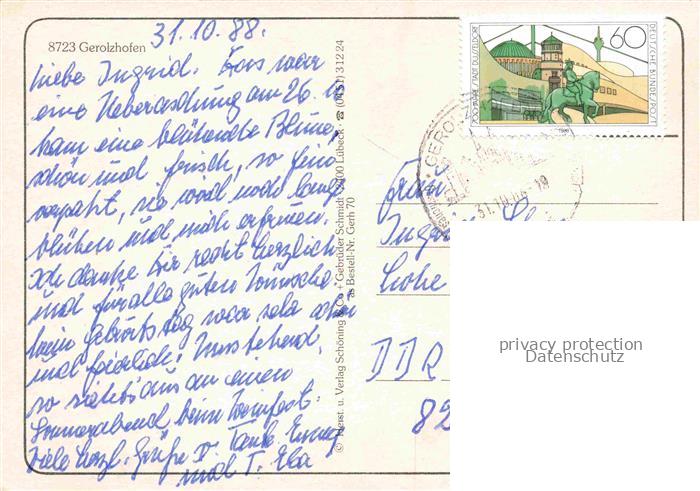 31.10.88.
8723 Gerolzhofen
Liebe Ingrid. Das war
eine Ueberaschung am 26.10
kam eine blühende Blume,
schön und frisch, so fein
verpakt, sie wird noch lang
blühen und mich erfreuen.
Ich danke Dir recht herzlich
und für alle guten Wünsche
mein Geburtstag war sehr schön
und feierlich. Umstehend,
so sieht's aus an einem
Sommerabend beim Weinfest.
Viele herzl. Grüße v. Tante Emmy
und T. Ela
© Herst. u. Verlag Schöning & Co + Gebrüder Schmidt · 2400 Lübeck · ☎ (0451) 3 12 24
as Bestell-Nr. Gerh 70
700 JAHRE STADT DÜSSELDORF
60
DEUTSCHE BUNDESPOST
1988
GEROLZHOFEN
31.10.88-19
Frau
Ingrid
Hohe
DDR
82
privacy protection
Datenschutz